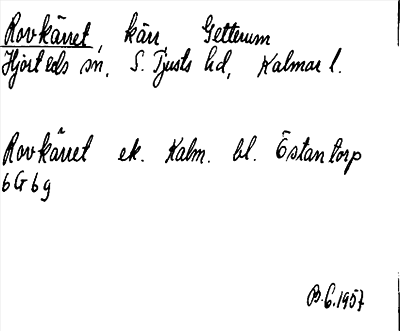 Rovkärret, kärr Getterum
Hjorteds sn, S. Tjusts hd, Kalmar l.
Rovkärret ek. Kalm. bl. Östantorp
6G6g
B.G. 1957